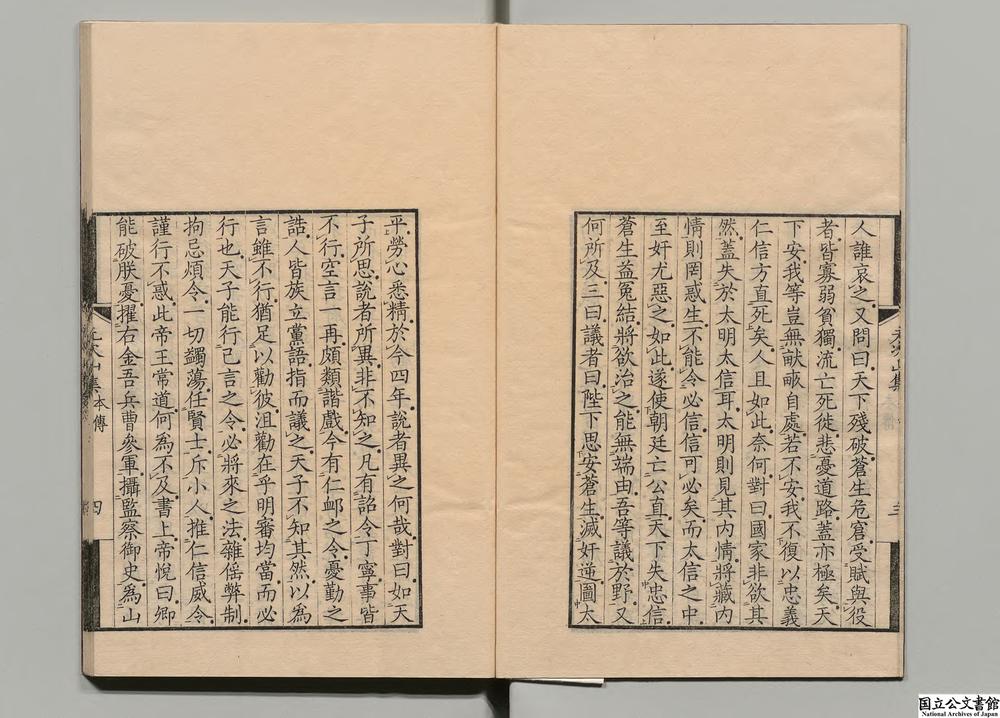 人誰哀之又問曰天下殘破蒼生危窘受賦與役
者皆寡弱貧獨流亡死徙悲憂道路蓋亦極矣天
下安我等豈無畎畝自處若不安我不復以忠義
仁信方直死矣人且如此奈何對曰國家非欲其
然蓋失於太明太信耳太明則見其内情將藏内
情則罔惑生不能令必信信可必矣而太信之中
至奸尤惡之如此遂使朝廷亡公直天下失忠信
蒼生益冤結將欲治之能無端由吾等議於野又
何所及三曰議者曰陛下思安蒼生滅奸逆圖太
三
平勞心悉精於今四年說者異之何哉對曰如天
子所思說者所異非不知之凡有詔令丁寧事皆
不行空言一再頗類諧戲今有仁䘏之令憂勤之
誥人皆族立黨語指而議之天子不知其然以為
言雖不行猶足以勸彼沮勸在乎明審均當而必
行也天子能行已言之令必將來之法雜徭弊制
拘忌煩令一切蠲蕩任賢士斥小人推仁信威令
謹行不惑此帝王常道何為不及書上帝悅曰卿
能破朕憂擢右金吾兵曹參軍攝監察御史為山
元次山集 本傳 四
国立公文書館
National Archives of Japan